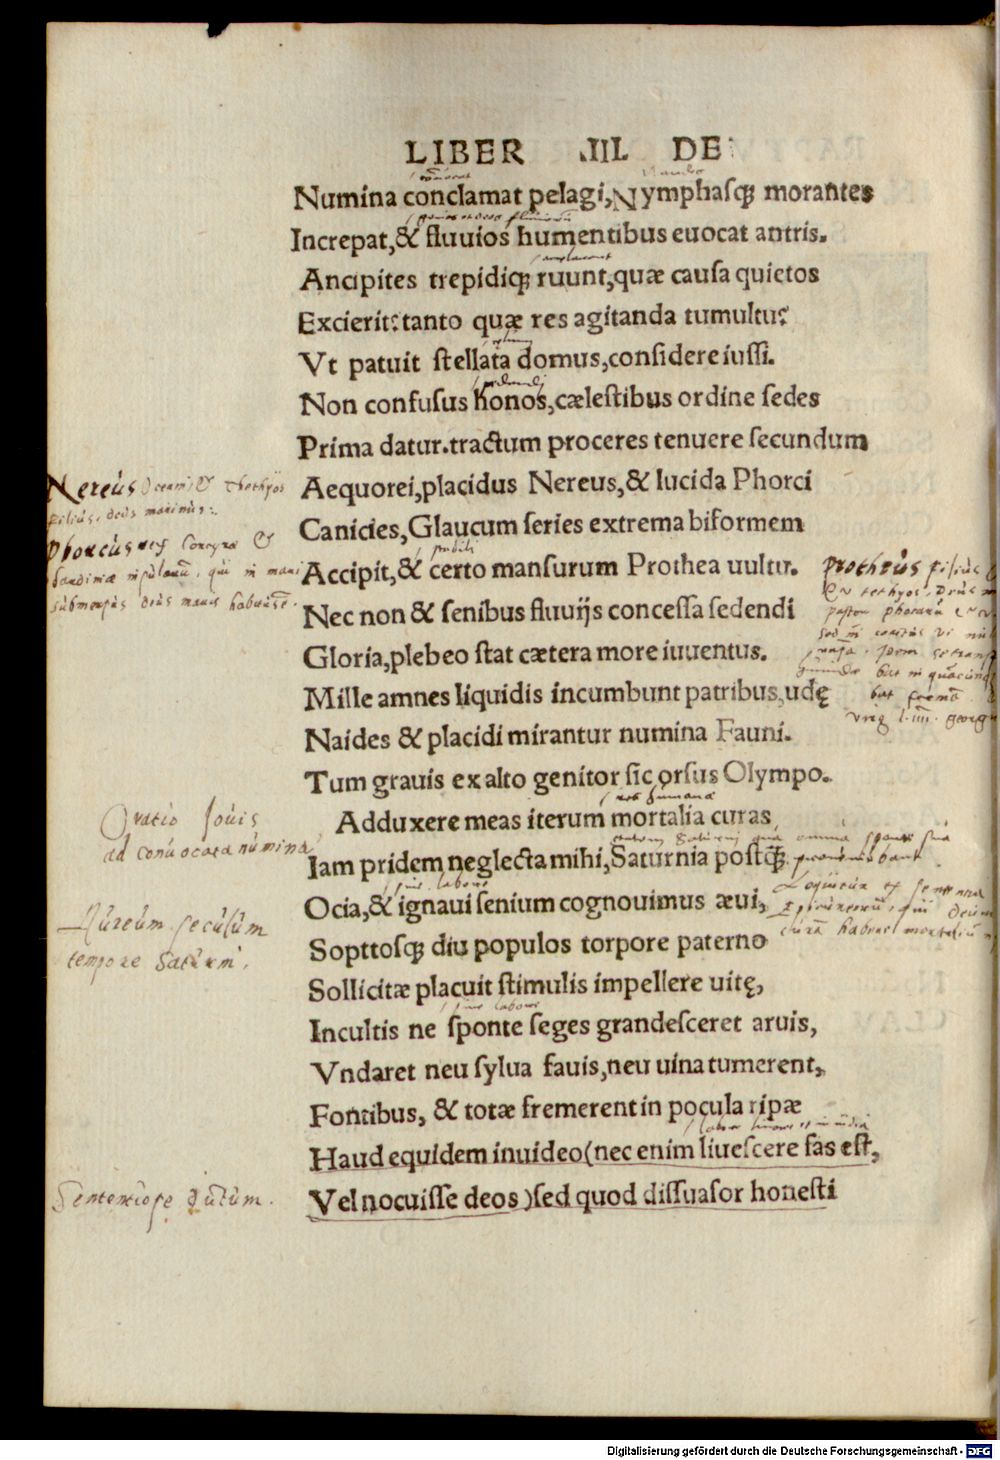 LIBER .III. DE
Numina conclamat pelagi, Nymphasqꝫ morantes
Increpat,& fluuios humentibus euocat antris.
Ancipites trepidiqꝫ ruunt,quæ causa quietos
Excierit:tanto quæ res agitanda tumultu?
Vt patuit stellata domus,considere iussi.
Non confusus honos,cælestibus ordine sedes
Prima datur.tractum proceres tenuere secundum
Nereus Oceani & Thethyos
Aequorei,placidus Nereus,& lucida Phorci
filius, deus marinus.
Canicies,Glaucum series extrema biformem
Phorcus rex Corsyræ &
Sardiniæ insularū, qui in mari
submersus deus maris habitus ē.
Accipit,& certo mansurum Prothea uultu.
Protheus filius
Nec non & senibus fluuijs concessa sedendi
Gloria,plebeo stat cætera more iuuentus.
Mille amnes liquidis incumbunt patribus,udę
Naides & placidi mirantur numina Fauni.
Virg l. iiii. georg
Tum grauis ex alto genitor sic orsus Olympo.
res humanæ
Oratio Iouis
Adduxere meas iterum mortalia curas
ad conuocata numina
Iam pridem neglecta mihi,Saturnia postqꝫ
sine labore
Ocia,& ignaui senium cognouimus æui,
Aureum seculum
tempore Saturni.
Sopttosqꝫ diu populos torpore paterno
Sollicitæ placuit stimulis impellere uitę,
sine labore
Incultis ne sponte seges grandesceret aruis,
Vndaret neu sylua fauis,neu uina tumerent,
Fontibus, & totæ fremerent in pocula ripæ
Haud equidem inuideo(nec enim liuescere fas est,
Sententiose dictum.
Vel nocuisse deos)sed quod dissuasor honesti
Digitalisierung gefördert durch die Deutsche Forschungsgemeinschaft - DFG